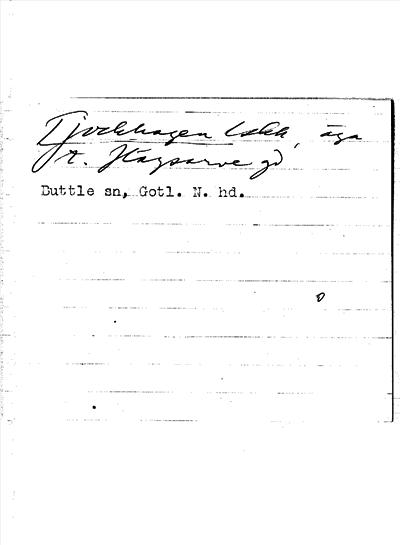 Tjockhagen äga
t. Hägsarve gd
Buttle sn, Gotl. N. hd.